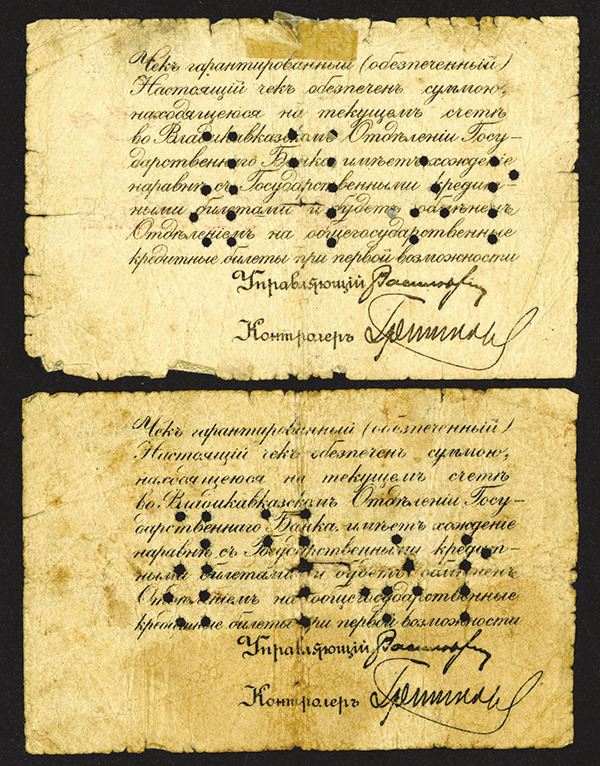 Чекъ гарантированный (обезпеченный)
Настоящій чекъ обезпеченъ суммою,
находящеюся на текущемъ счетѣ
во Владикавказскомъ Отдѣленіи Госу-
дарственнаго Банка имѣетъ хожденіе
наравнѣ съ Государственными кредит-
ными билетами и будетъ обмѣненъ
Отдѣленіемъ на общегосударственные
кредитные билеты при первой возможности
Управляющій
Контролеръ
Чекъ гарантированный (обезпеченный)
Настоящій чекъ обезпеченъ суммою,
находящеюся на текущемъ счетѣ
во Владикавказскомъ Отдѣленіи Госу-
дарственнаго Банка имѣетъ хожденіе
наравнѣ съ Государственными кредит-
ными билетами и будетъ обмѣненъ
Отдѣленіемъ на общегосударственные
кредитные билеты при первой возможности
Управляющій
Контролеръ